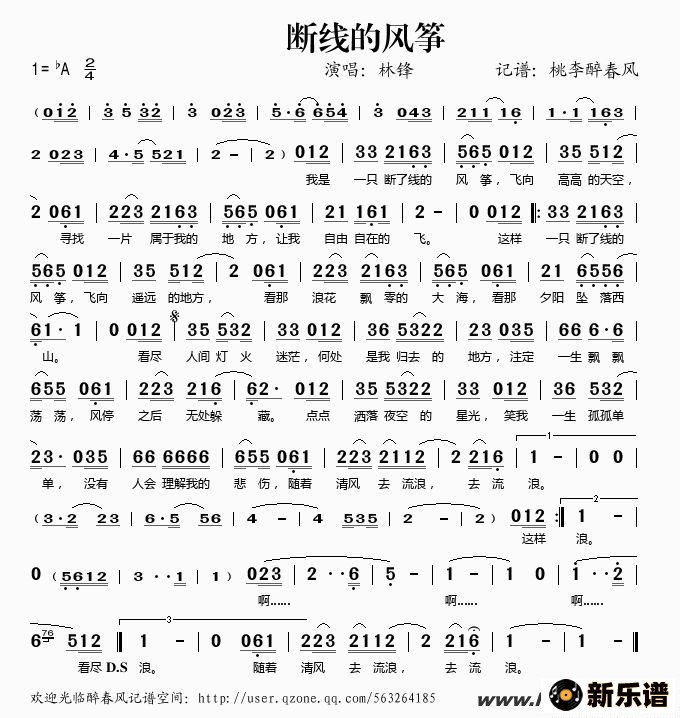 断线的风筝
1=♭A 2/4 演唱：林锋 记谱：桃李醉春风
(012 | 3 532 | 3 023 | 5·6 654 | 3 043 | 211 16 | 1·1 163
2 023 | 4·5 521 | 2 - | 2) 012 | 33 2163 | 565 012 | 35 512 |
我是 一只 断了线的 风 筝，飞向 高高 的天空，
2 061 | 223 2163 | 565 061 | 21 161 | 2 - | 0 012 |: 33 2163 |
寻找 一片 属于我的 地 方，让我 自由 自在的 飞。 这样 一只 断了线的
565 012 | 35 512 | 2 061 | 223 2163 | 565 061 | 21 6556 |
风 筝，飞向 遥远 的地方， 看那 浪花 飘 零的 大 海，看那 夕阳 坠 落西
61· 1 | 0 012 | 35 532 | 33 012 | 36 5322 | 23 035 | 66 6·6 |
山。 看尽 人间 灯 火 迷茫，何处 是我 归去 的 地方，注定 一生 飘飘
655 061 | 223 216 | 62· 012 | 35 5322 | 23 035 | 36 532 |
荡 荡，风停 之后 无处躲 藏。 点点 洒落 夜空 的 星光，笑我 一生 孤孤单
23· 035 | 66 6666 | 655 061 | 223 2112 | 2 216 | 1 - | 0 0 |
单，没有 人会 理解我的 悲 伤，随着 清风 去 流浪， 去 流 浪。
(3·2 23 | 6·5 56 | 4 - | 4 535 | 2 - | 2) 012 :| 1 - |
这样 浪。
0 (5612 | 3 ··1 | 1) 023 | 2 ··6 | 5 - | 1 - | 0 1 | 1 ··2 |
啊…… 啊…… 啊……
6 512 || 1 - | 0 061 | 223 2112 | 2 216 | 1 - ||
看尽 D.S 浪。 随着 清风 去 流浪， 去 流 浪。
欢迎光临醉春风记谱空间：http://user.qzone.qq.com/563264185
www. 新乐谱